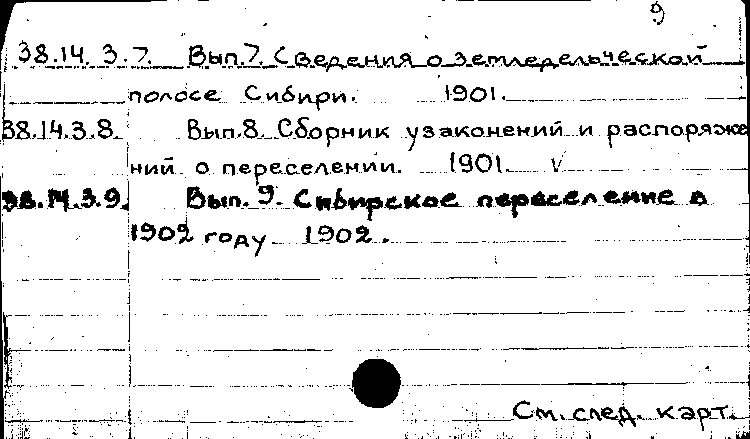 9
38.14.3.7. Вып.7. Сведения о земледельческой
полосе Сибири. 1901.
38.14.3.8. Вып.8. Сборник узаконений и распоряже
ний о переселении. 1901. V
38.14.3.9. Вып. 9. Сибирское переселение в
1902 году 1902.
См. след. карт.